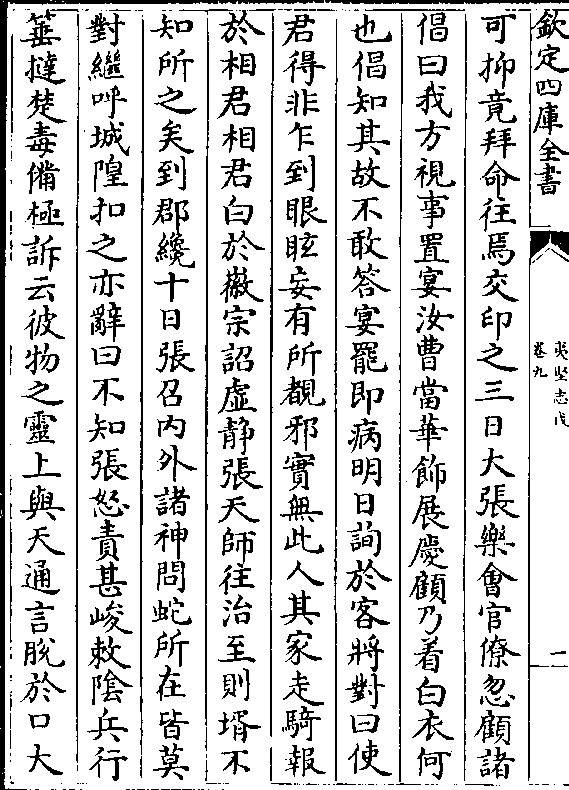 欽定四庫全書
夷堅志戊
卷九
一
可抑竟拜命往焉交印之三日大張樂會官僚忽顧諸
倡曰我方視事置宴汝曹當華飾展慶顧乃着白衣何
也倡知其故不敢答宴罷即病明日詢於客將對曰使
君得非乍到眼眩妄有所覩邪實無此人其家走騎報
於相君相君白於徽宗詔虛静張天師往治至則壻不
知所之矣到郡纔十日張召內外諸神問蛇所在皆莫
對繼呼城隍扣之亦辭曰不知張怒責甚峻敕陰兵行
箠撻楚毒備極訴云彼物之靈上與天通言脫於口大